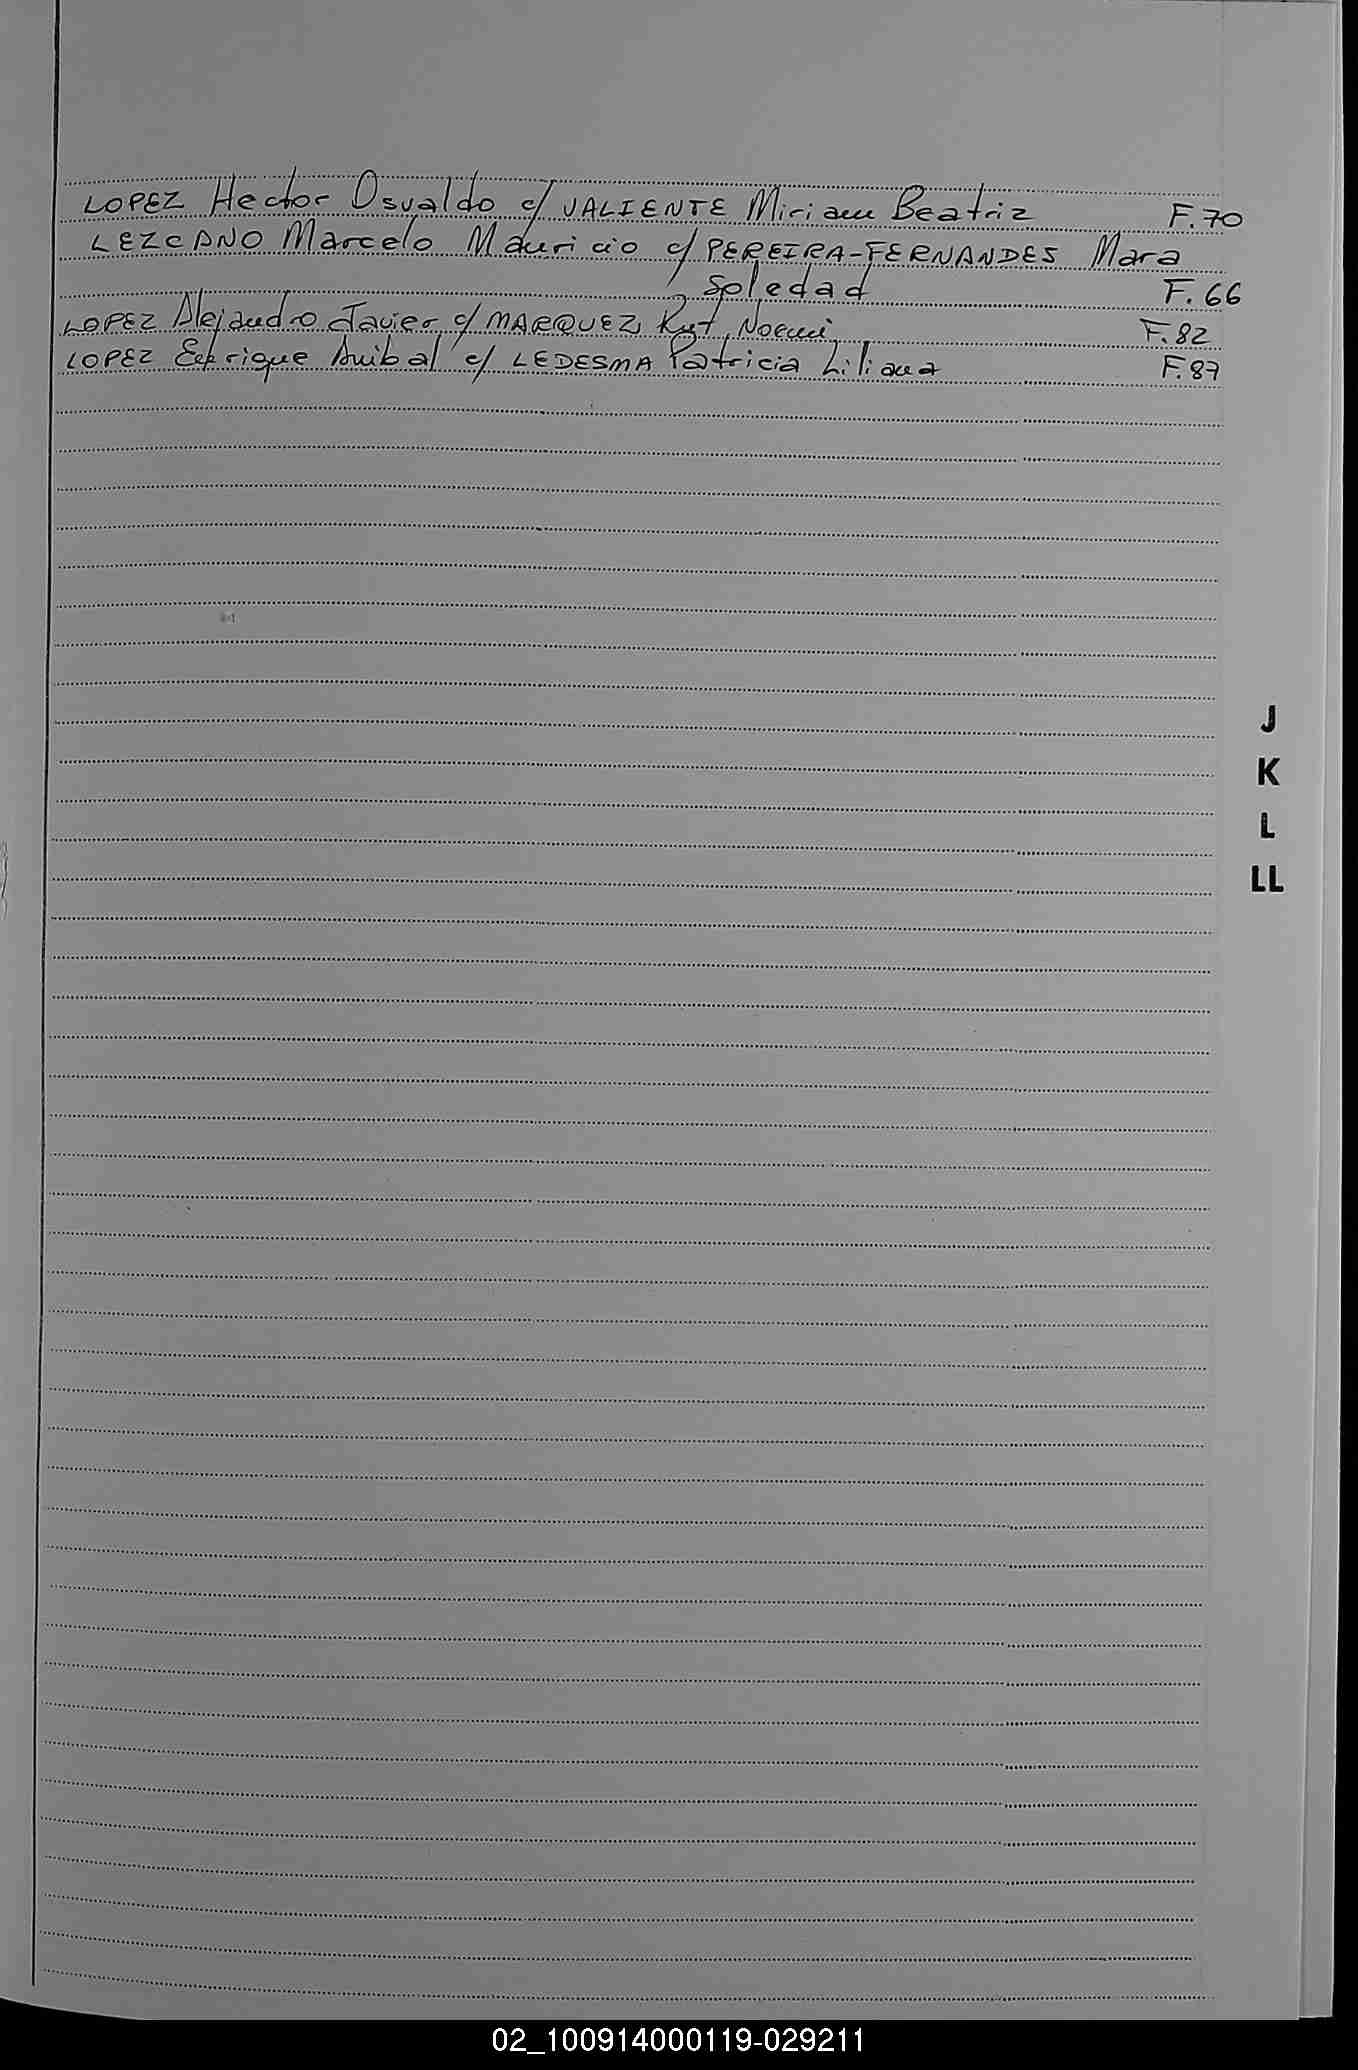 LOPEZ Hector Osvaldo c/ VALIENTE Miriam Beatriz F.70
LEZCANO Marcelo Mauricio c/ PEREIRA-FERNANDES Mara
Soledad F.66
LOPEZ Alejandro Javier c/ MARQUEZ, Rut, Noemi, F.82
LOPEZ Enrique Anibal c/ LEDESMA Patricia Liliana F.87
J
K
L
LL
02_100914000119-029211